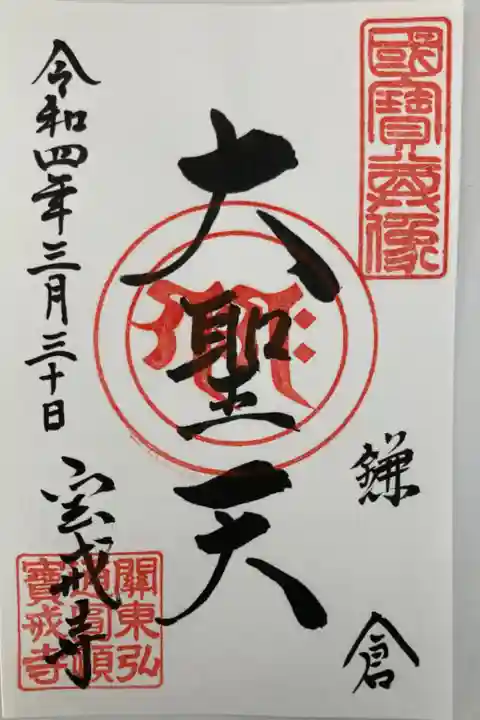 國寶像
鎌倉
大聖天
宝戒寺
令和四年三月三十日
關東弘
通圓頓
寶戒寺